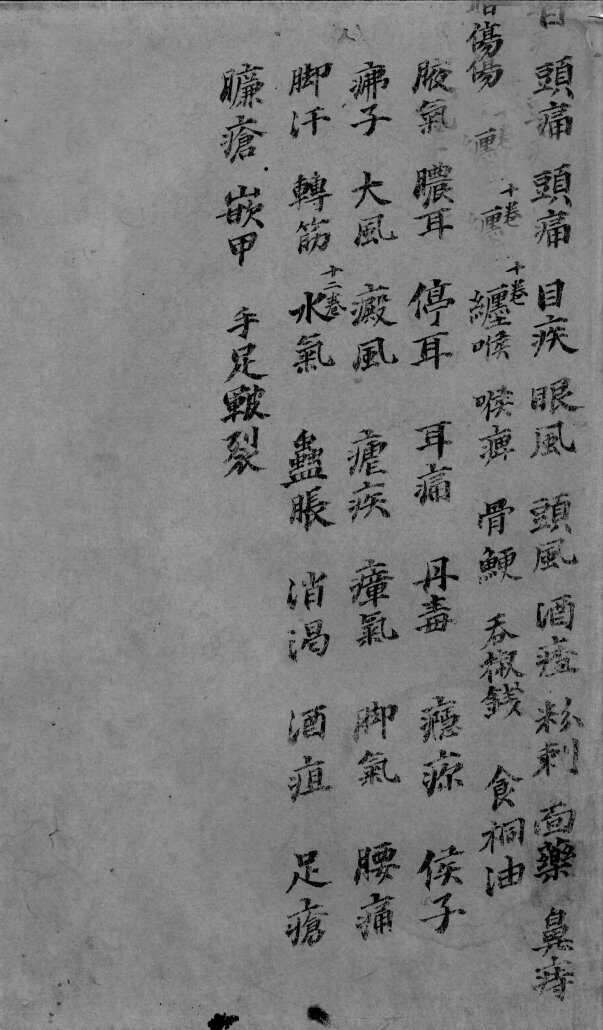 頭痛 頭痛 目疾 眼風 頭風 酒疸 粉刺 面藥 鼻痔
傷傷 纏 十卷 纏 十卷 纏喉 喉痺 骨鯁 吞椒錢 食桐油
腋氣 膿耳 停耳 耳痛 丹毒 瘛 㾓 侯子
疿子 大風 癜風 瘧疾 瘴氣 脚氣 腰痛
脚汗 轉筋 十二卷 水氣 蠱脹 消渴 酒疸 足瘡
臁瘡 嵌甲 手足皸裂